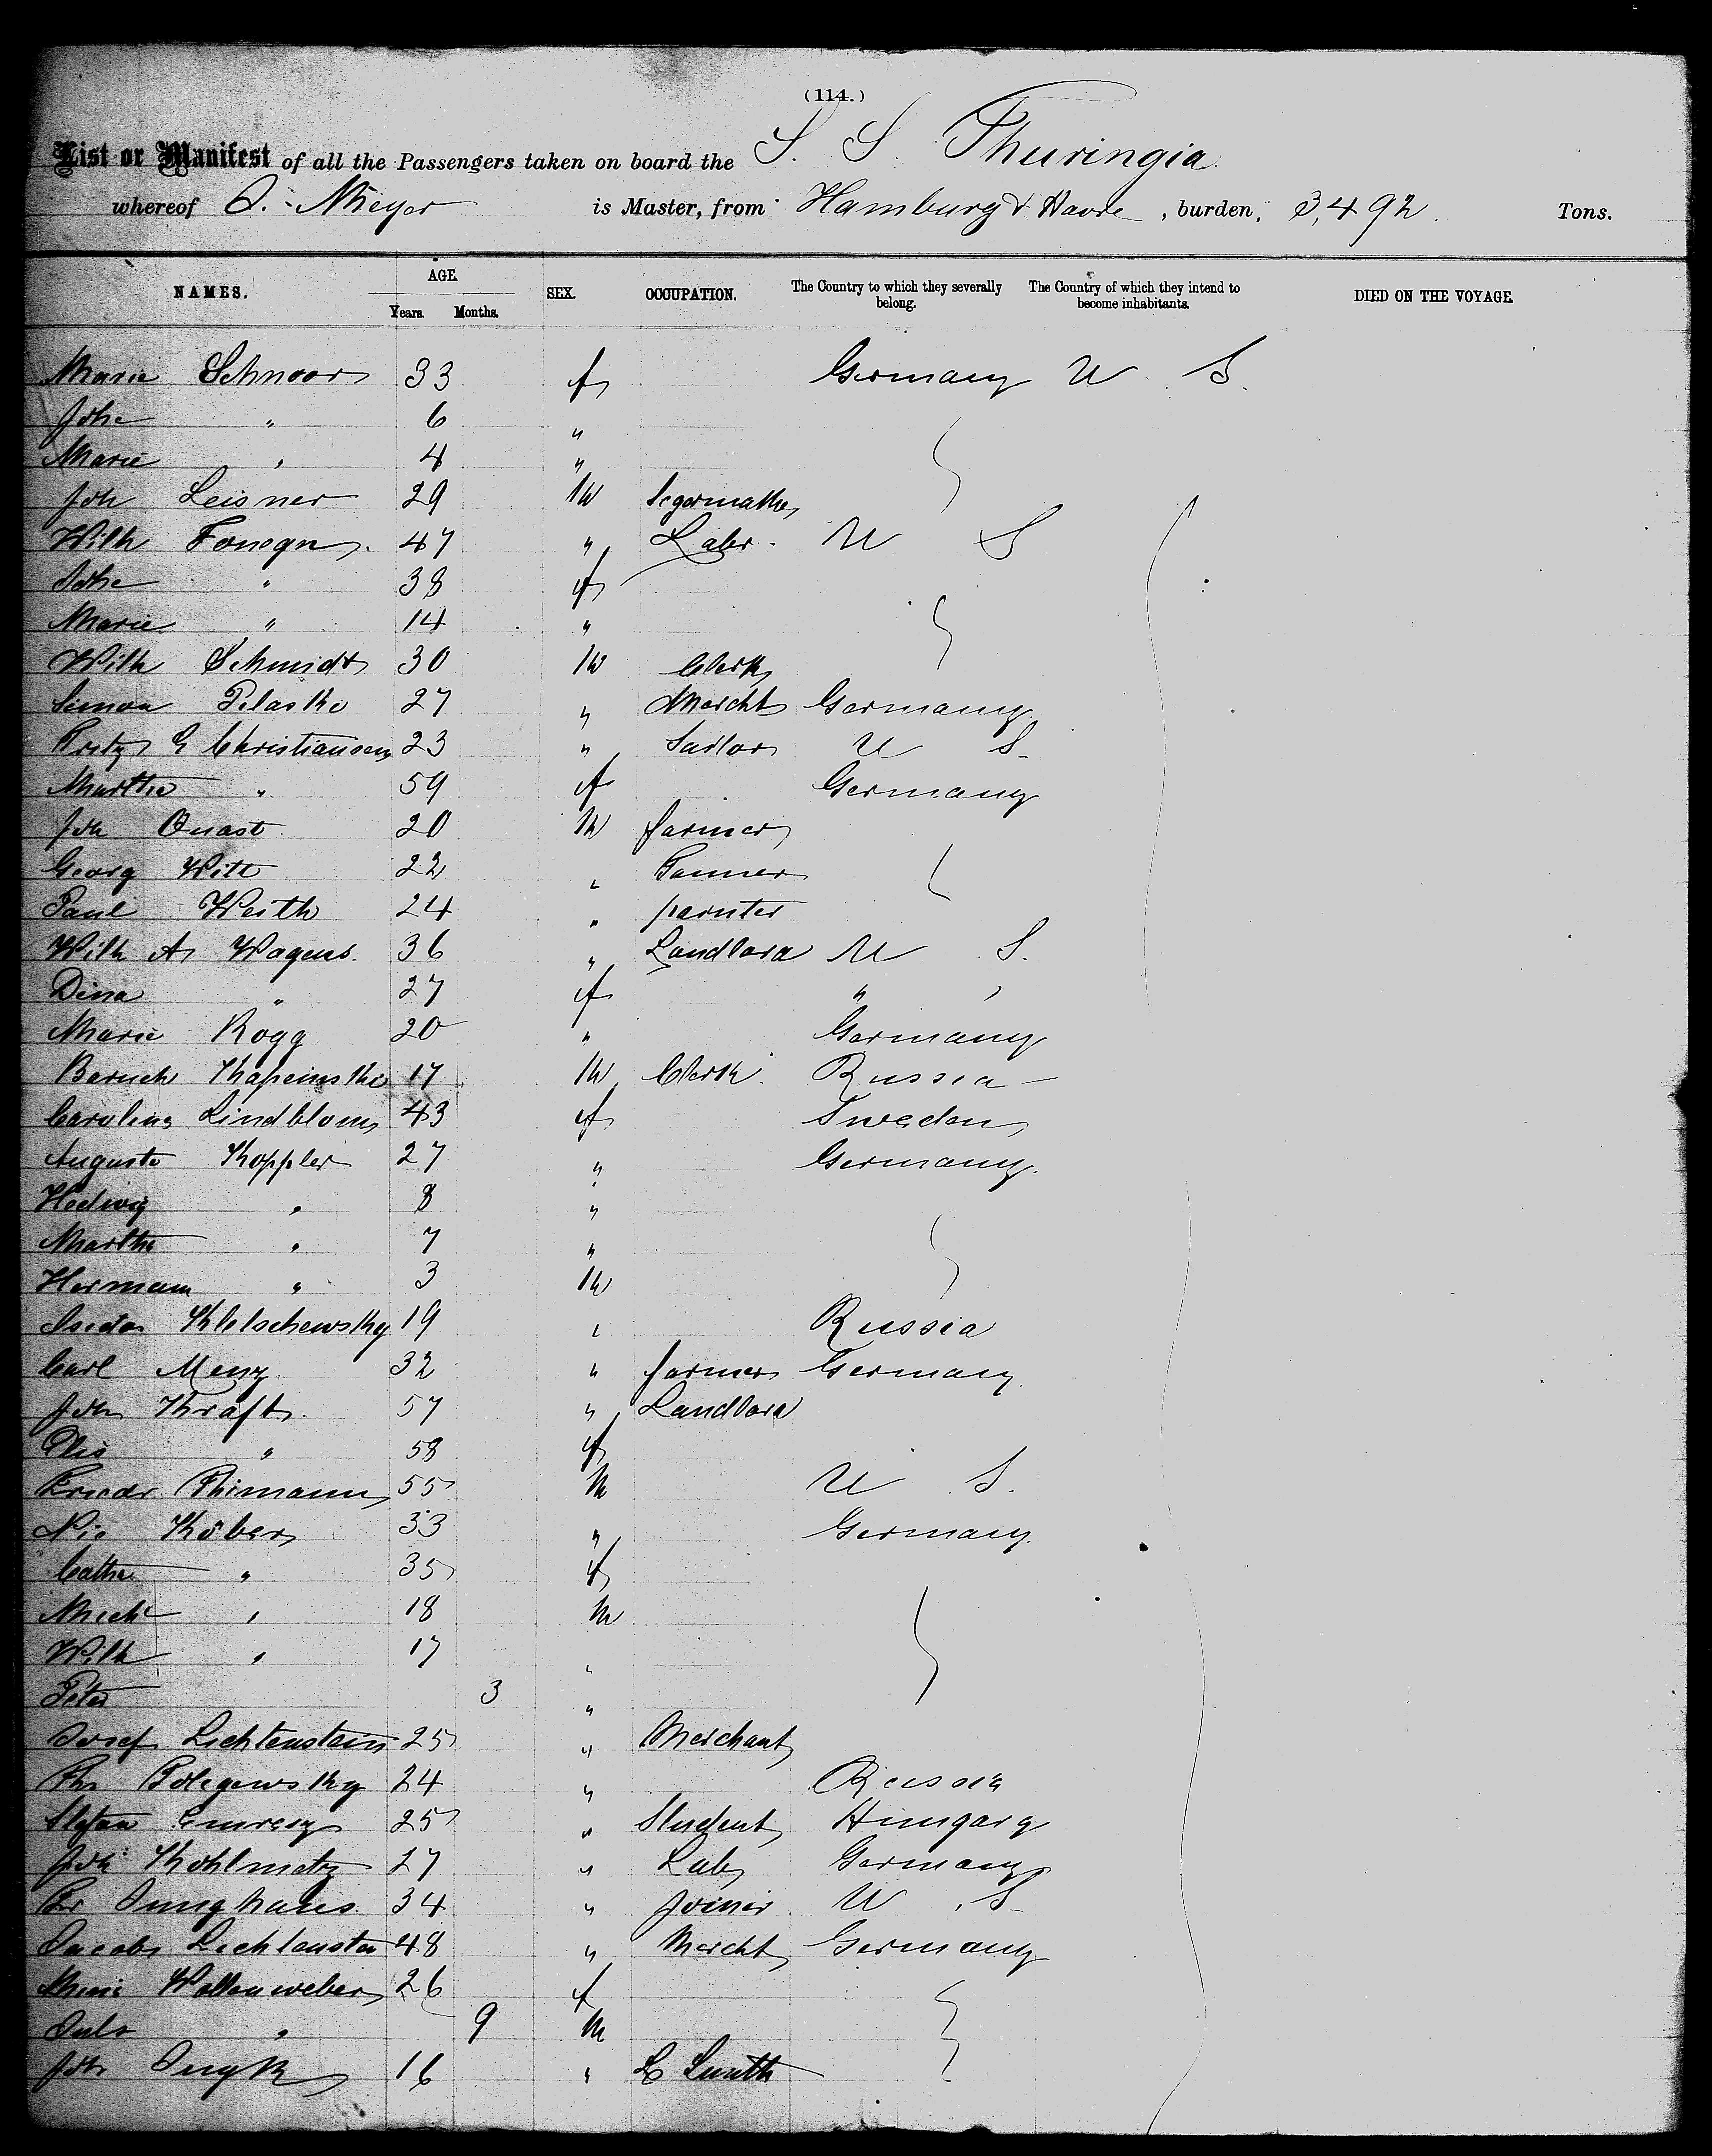 (114.)
List or Manifest of all the Passengers taken on board the S. S. Thuringia
whereof A. Meyer is Master, from Hamburg & Havre, burden, 3,492 Tons.
NAMES. AGE. SEX. OCCUPATION. The Country to which they severally belong. The Country of which they intend to become inhabitants. DIED ON THE VOYAGE.
Years. Months.
Marie Schnoor 33 f Germany U S.
Johe " 6 "
Marie " 4 "
Joh Leisner 29 M
Wilh 47 " Labr. U S
Johe " 38 f
Marie " 14 "
Wilh Schmidt 30 M Clerk
Simon Pilaski 27 " Mercht Germany
Fritz G Christiansen 23 " Sailor U S.
Martha " 59 f Germany
Joh Quast 20 M farmer
Georg Witt 22 " Tanner
Paul Weith 24 " painter
Wilh A Wagens 36 " Landlord U S.
Dina " 27 f " "
Marie Rogg 20 " Germany
Baruch 17 M Clerk Russia
Carolina Lindblom 43 f Sweden
Auguste Koppler 27 " Germany
Hedwig " 8 "
Martha " 7 "
Hermann " 3 M
Isidor 19 " Russia
Carl Menz 32 " farmer Germany
Joh Kraft 57 " Landlord
Elis " 58 f
Friedr Thimann 55 M U S.
Nic Köber 33 " Germany
Cathe " 35 f
Michl " 18 M
Wilh " 17 "
Peter 3 "
Josef Lichtenstein 25 " Merchant
24 " Russia
Stefan 25 " Student Hungary
Joh Kohlmetz 27 " Lab Germany
Fr Junghans 34 " Joiner U. S.
Jacob Lichtenstein 48 " Mercht Germany
Wollenweber 26 f
Juls " 9 M
Joh 16 " L Smith